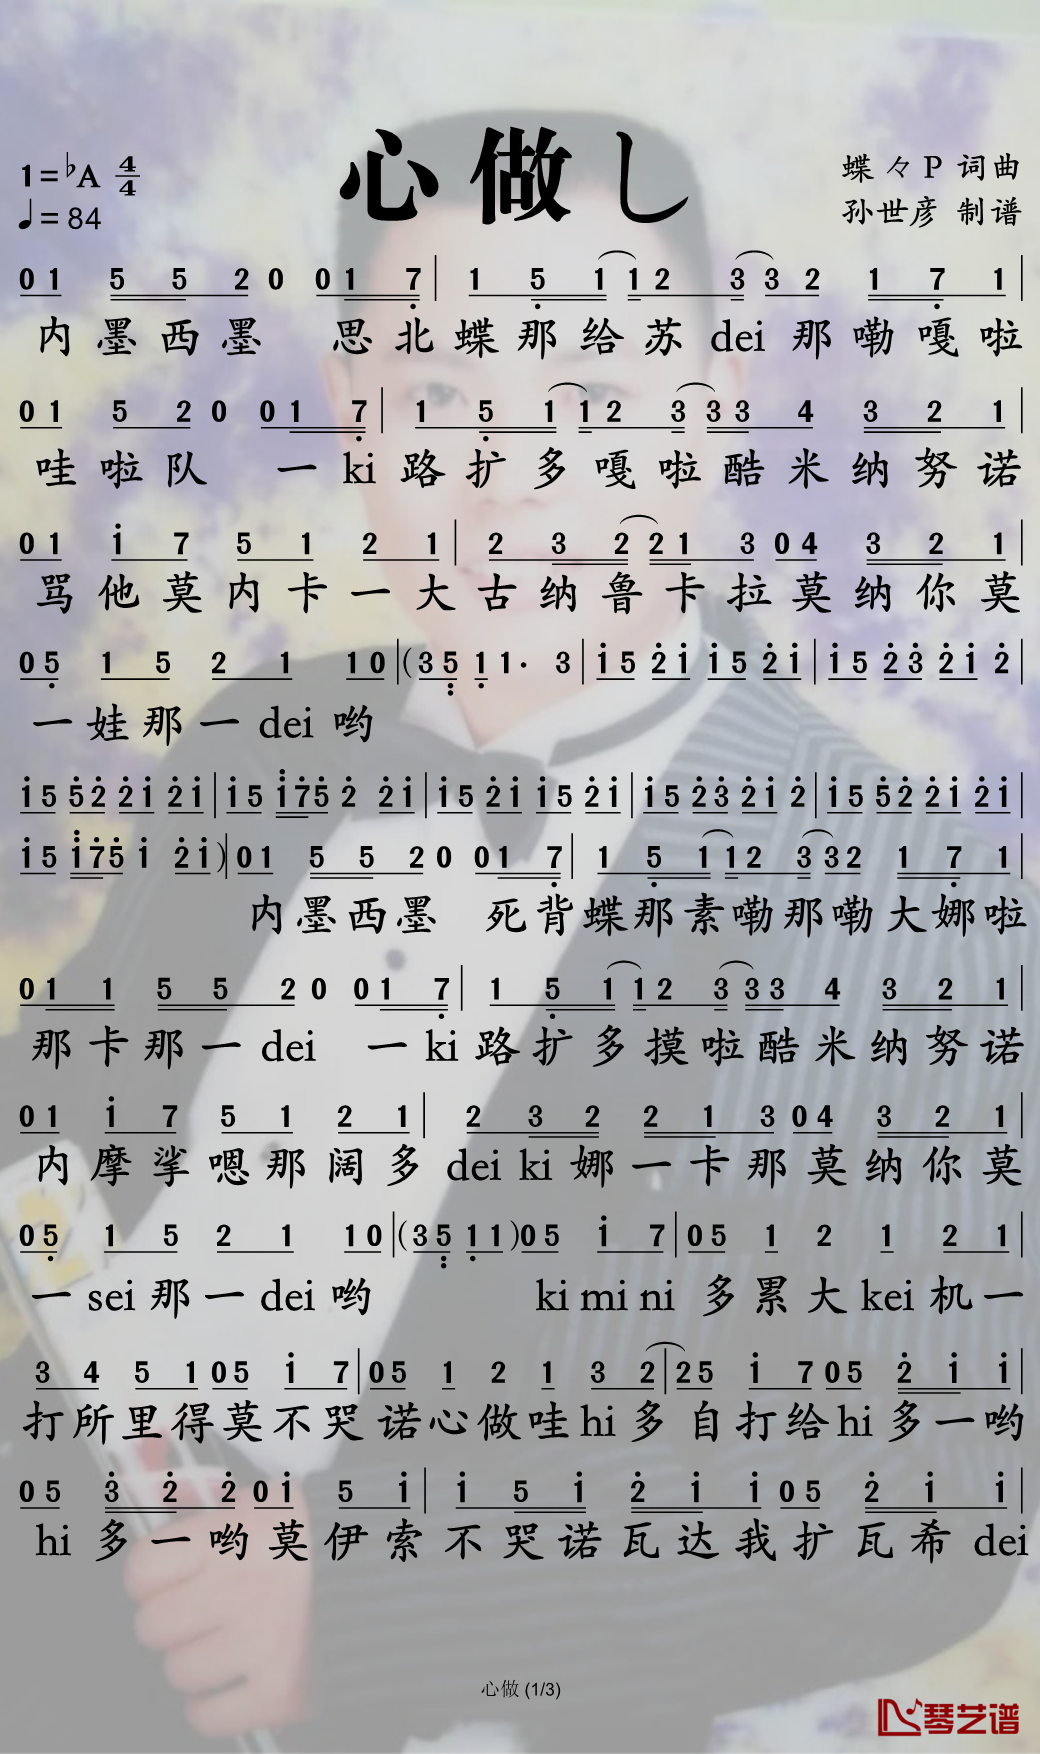 心做し
1=♭A 4/4
♩=84
蝶々P 词曲
孙世彦 制谱
01 5 5 2 0 01 7 | 1 5 1 1 2 3 3 2 1 7 1 |
内墨西墨 思北蝶那给苏dei那嘞嘎啦
01 5 2 0 01 7 | 1 5 1 1 2 3 3 3 4 3 2 1 |
哇啦队 一ki路扩多嘎啦酷米纳努诺
01 1 7 5 1 2 1 | 2 3 2 2 1 3 04 3 2 1 |
骂他莫内卡一大古纳鲁卡拉莫纳你莫
05 1 5 2 1 10 | (35 1 1· 3 | 15 21 15 21 | 15 23 21 2 |
一娃那一dei哟
15 52 21 21 | 15 175 2 21 | 15 21 15 21 | 15 23 21 2 | 15 52 21 21 |
15 175 1 21) | 01 5 5 2 0 01 7 | 1 5 1 1 2 3 3 2 1 7 1 |
内墨西墨 死背蝶那素嘞那嘞大娜啦
01 1 5 5 2 0 01 7 | 1 5 1 1 2 3 3 3 4 3 2 1 |
那卡那一dei 一ki路扩多摸啦酷米纳努诺
01 1 7 5 1 2 1 | 2 3 2 2 1 3 04 3 2 1 |
内摩挲嗯那阔多dei ki娜一卡那莫纳你莫
05 1 5 2 1 10 | (35 11)05 1 7 | 05 1 2 1 2 1 |
一sei那一dei哟 ki mi ni 多累大kei机一
3 4 5 1 05 1 7 | 05 1 2 1 3 2 | 25 1 7 05 2 1 1 |
打所里得莫不哭诺心做哇hi多自打给hi多一哟
05 3 2 2 01 5 1 | 1 5 1 2 1 1 05 2 1 1 |
hi多一哟莫伊索不哭诺瓦达我扩瓦希dei
心做 (1/3)
琴艺谱